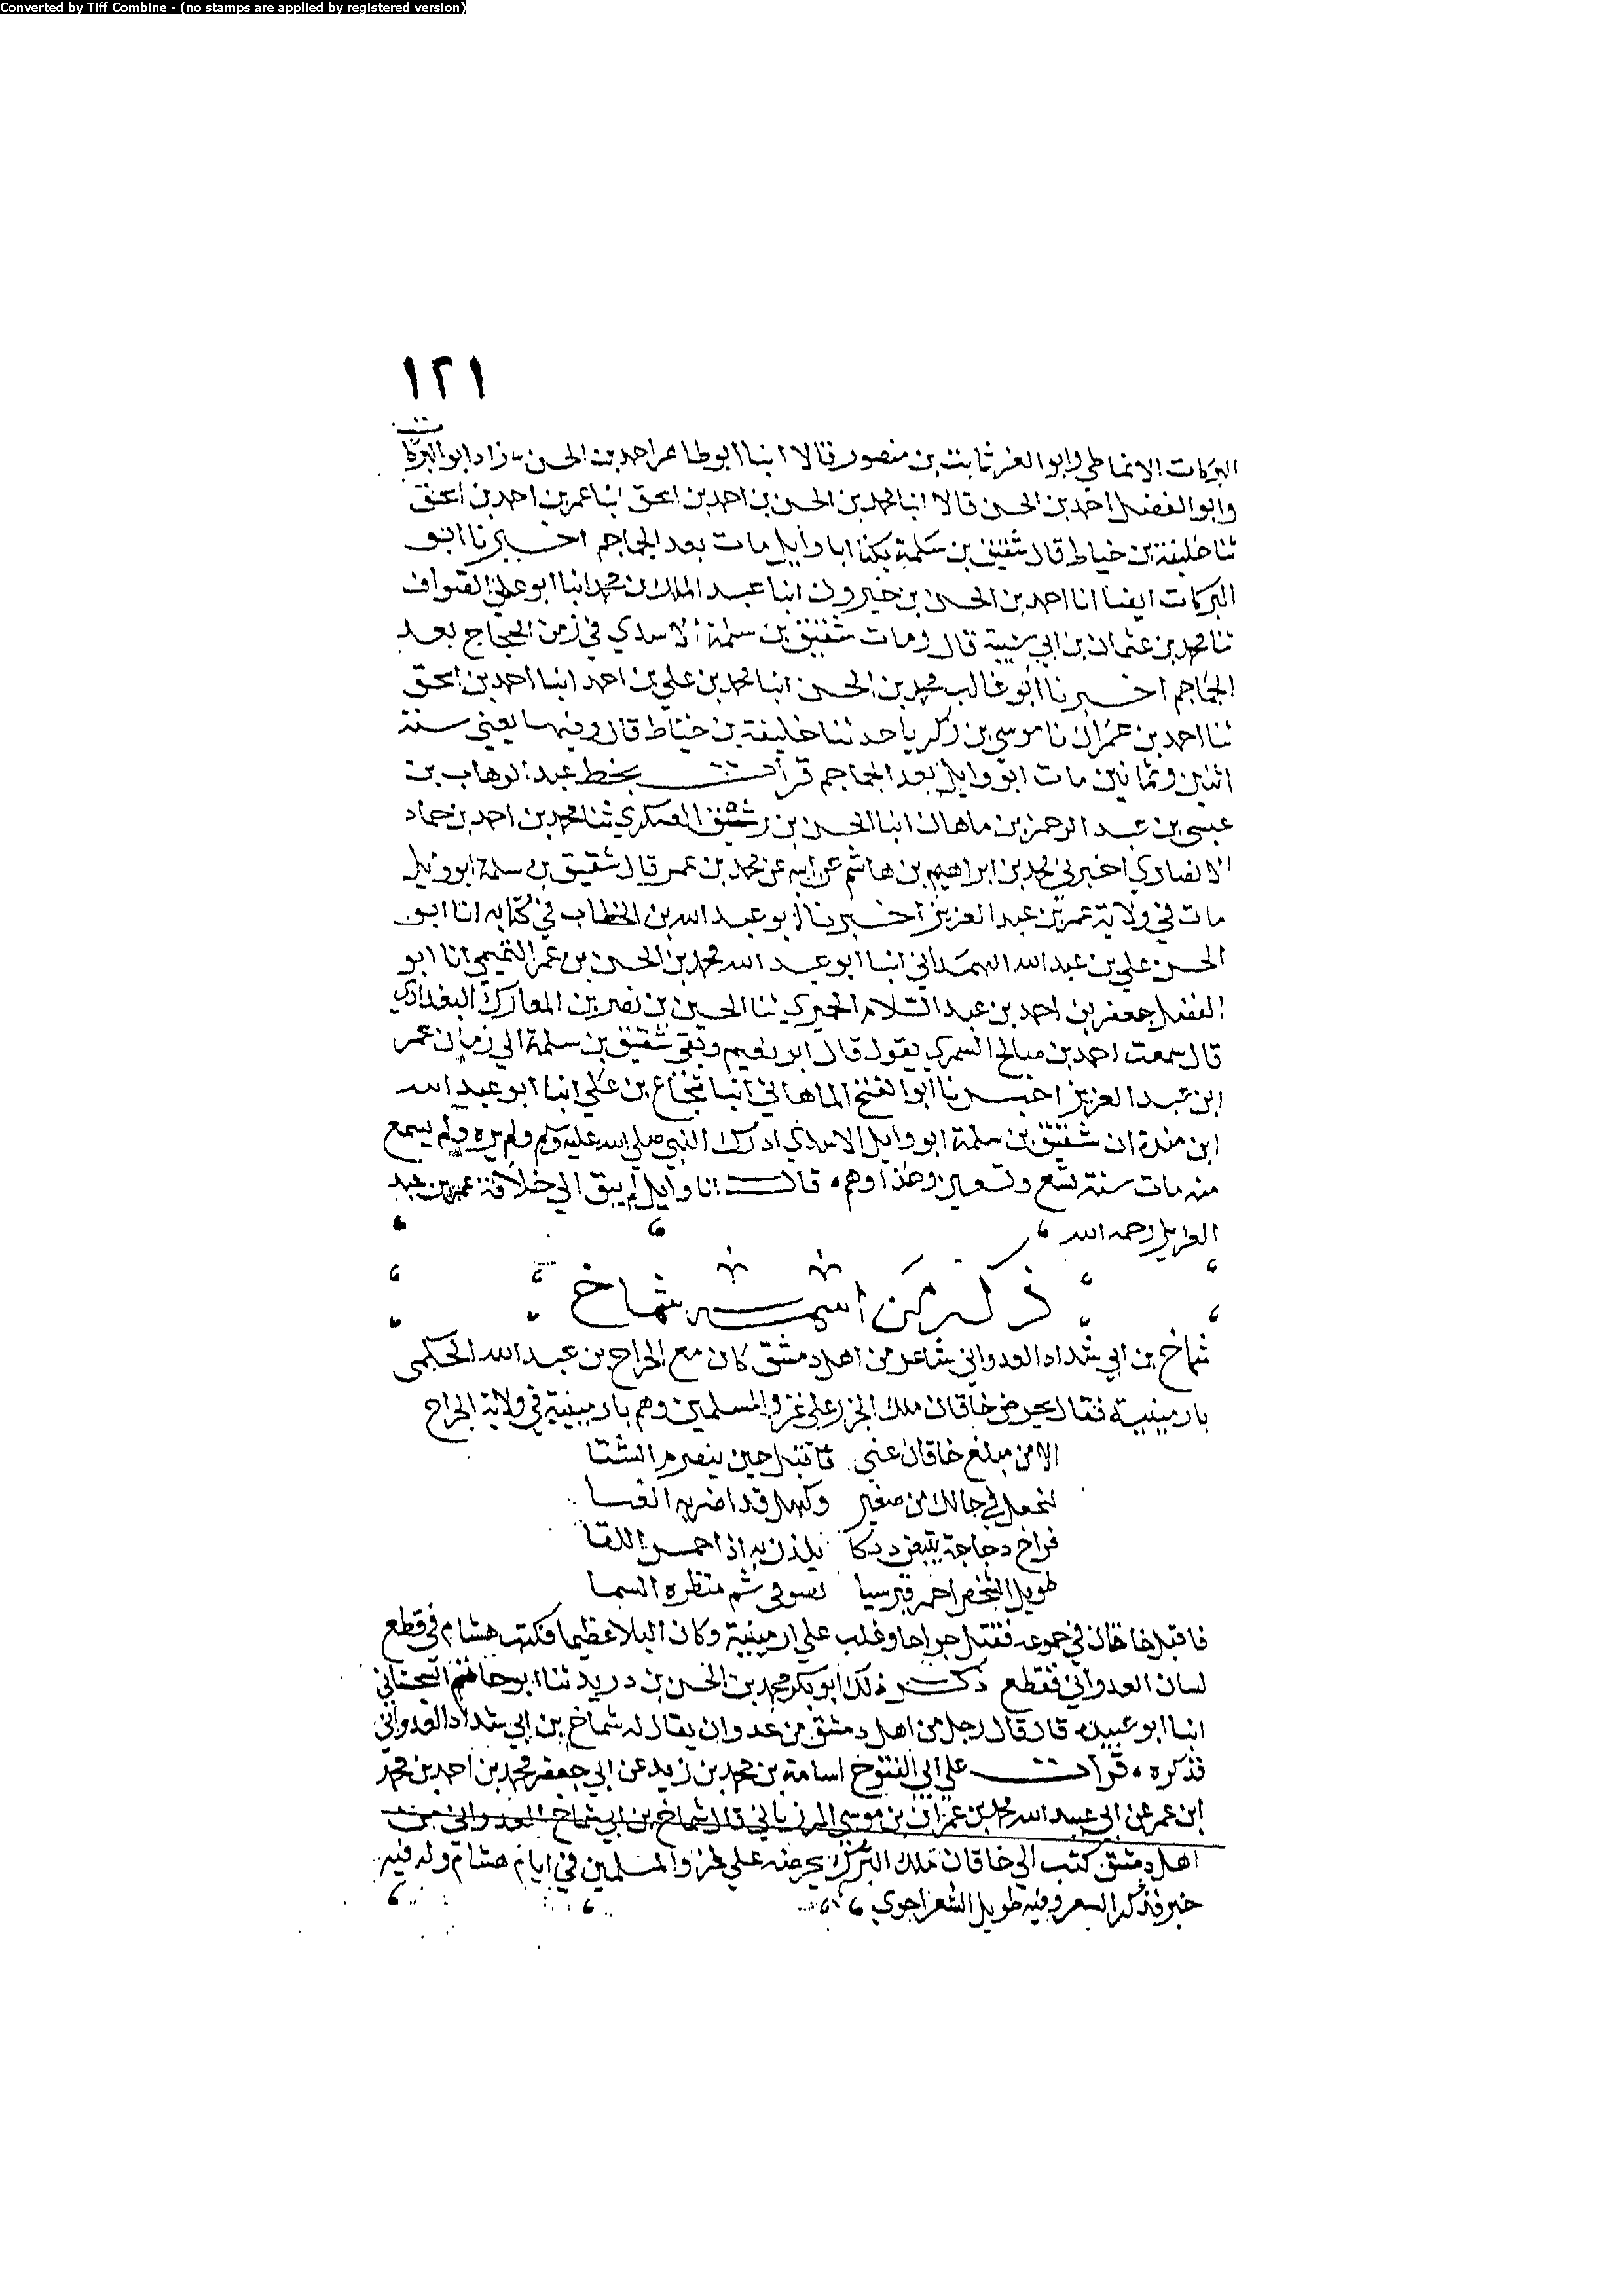 Converted by Tiff Combine - (no stamps are applied by registered version)
١٢١
البركات الانماطي وابو العز ثابت بن منصور قالا انبا ابو طاهر احمد بن الحسن زاد ابو البركات
وابو الفضل احمد بن الحسن قالا انبا محمد بن الحسن بن احمد بن اسحق انبا عمر بن احمد بن اسحق
ثنا خليفة بن خياط قال شقيق بن سلمة يكنا ابا وايل مات بعد الجماجم اخبرنا ابو
البركات ايضا انا احمد بن الحسن بن خيرون انبا عبد الملك بن محمد انبا ابو علي الصواف
ثنا محمد بن عثمان بن ابي شيبة قال ومات شقيق بن سلمة الاسدي في زمن الحجاج بعد
الجماجم اخبرنا ابو غالب محمد بن الحسن انبا محمد بن علي بن احمد انبا احمد بن اسحق
ثنا احمد بن عمران نا موسى بن زكريا حدثنا خليفة بن خياط قال وفيها يعني سنة
اثنين وثمانين مات ابو وايل بعد الجماجم قرأت بخط عبد الوهاب بن
عيسى بن عبد الرحمن بن ماهان انبا الحسن بن رشيق العسكري ثنا محمد بن احمد بن حماد
الانصاري اخبرني محمد بن ابراهيم بن هاشم عن ابيه عن محمد بن عمر قال شقيق بن سلمة ابو وايل
مات في ولاية عمر بن عبد العزيز اخبرنا ابو عبد الله بن الخطاب في كتابه انا ابو
الحسن علي بن عبد الله الهمداني انبا ابو عبد الله محمد بن الحسن بن عمر التميمي انا ابو
الفضل جعفر بن احمد بن عبد السلام الحميري ثنا الحسين بن نصر بن المعارك البغدادي
قال سمعت احمد بن صالح المصري يقول قال ابو نعيم وبقي شقيق بن سلمة الي زمان عمر
ابن عبد العزيز اخبرنا ابو الفتح الماهاني انبا شجاع بن علي انبا ابو عبد الله
ابن مندة ان شقيق بن سلمة ابو وايل الاسدي ادرك النبي صلي الله عليه وسلم ولم يره ولم يسمع
منه مات سنة تسع وتسعين وهذا وهم قال انا وايل لم يبق الي خلافة عمر بن عبد
العزيز رحمه الله
ذكر من اسمه شماخ
شماخ بن ابي شداد العدواني شاعر من اهل دمشق كان مع الجراح بن عبد الله الحكمي
بارمينية فقال يحرض خاقان ملك الخزر علي غزو المسلمين وهم بارمينية في ولاية الجراح
الا من مبلغ خاقان عني فاقبل حين ينصرم الشتا
لتجعل في حبالك من صغير وكهل قد اضر به
فراخ دجاجة يتبعن ديكا يلذن به اذا احمس اللقا
طويل الشخص احمر منظره السما
فاقبل خاقان في جموعه فقتل جراحا وغلب علي ارمينية وكان البلا عظيما فكتب هشام في قطع
لسان العدواني فقطع ذكر ذلك ابو بكر محمد بن الحسن بن دريد ثنا ابو حاتم السجستاني
انبا ابو عبيدة قال قال رجل من اهل دمشق من عدوان يقال له شماخ بن ابي شداد العدواني
فذكره قرأت علي ابي الفتوح اسامة بن محمد بن زيد عن ابي جعفر محمد بن احمد بن محمد
ابن عمر عن ابي عبيد الله محمد بن عمران بن موسى المرزباني قال شماخ بن ابي شماخ العدواني من
اهل دمشق كتب الي خاقان ملك الترك يحرضه علي غزو المسلمين في ايام هشام وله فيه
خبر فذكر الشعر وفيه طويل الشعر